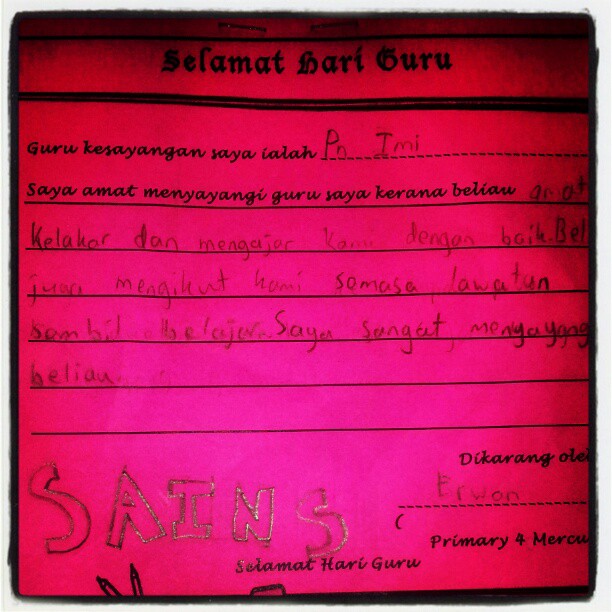 Selamat Hari Guru
Guru kesayangan saya ialah Pn Imi
Saya amat menyayangi guru saya kerana beliau amat
kelakar dan mengajar kami dengan baik. Bel
juga mengikut kami semasa lawatan
sambil belajar. Saya sangat menyayang
beliau
Dikarang ole
Erwan
SAINS
(
Primary 4 Mercu
Selamat Hari Guru